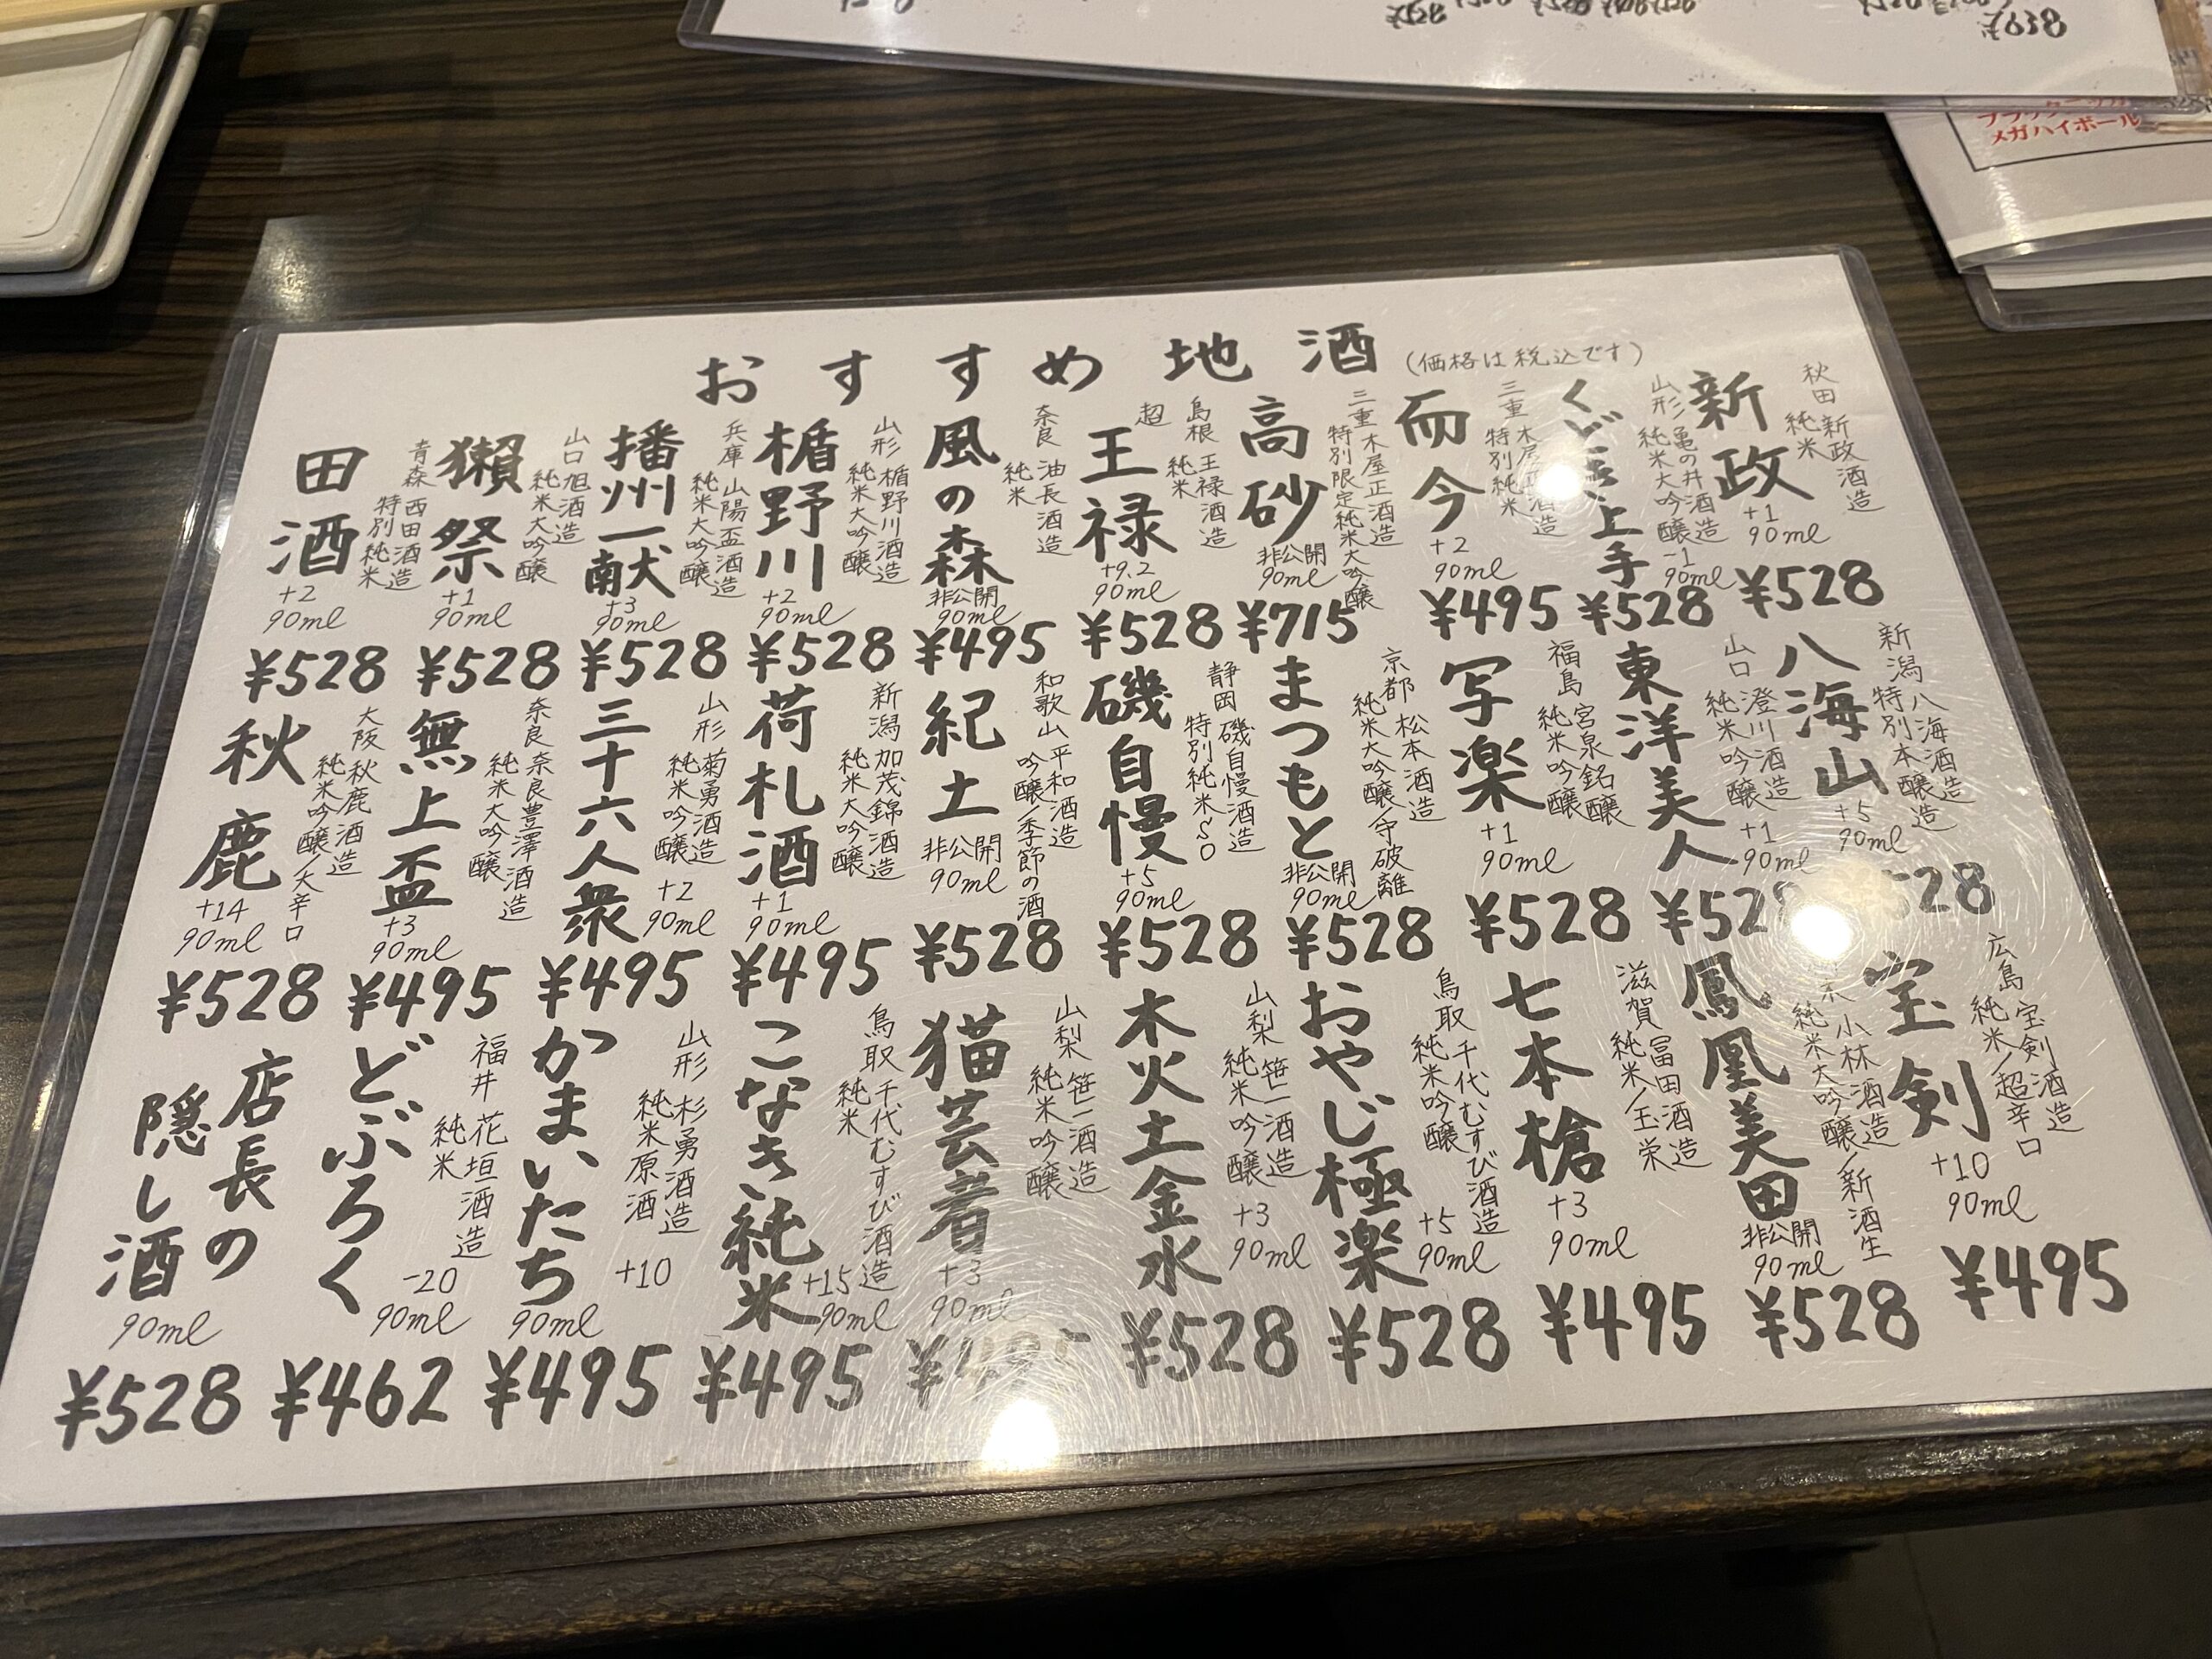 ¥528
¥638
メガハイボール
おすすめ地酒(価格は税込です)
新政
秋田 新政酒造
純米
+1
90ml
¥528
くどき上手
山形 亀の井酒造
純米大吟醸
-1
90ml
¥528
而今
三重
特別純米
+2
90ml
¥495
高砂
三重 木屋正酒造
特別限定純米大吟醸
非公開
90ml
¥715
王禄
超
島根 王禄酒造
純米
+9.2
90ml
¥528
風の森
奈良 油長酒造
純米
非公開
90ml
¥495
楯野川
山形 楯野川酒造
純米大吟醸
+2
90ml
¥528
播州一献
兵庫 山陽盃酒造
純米大吟醸
+3
90ml
¥528
獺祭
山口 旭酒造
純米大吟醸
+1
90ml
¥528
田酒
青森 西田酒造
特別純米
+2
90ml
¥528
八海山
新潟 八海酒造
特別本醸造
+5
90ml
東洋美人
山口 澄川酒造
純米吟醸
+1
90ml
写楽
福島 宮泉銘醸
純米吟醸
+1
90ml
¥528
まつもと
京都 松本酒造
純米大吟醸/守破離
非公開
90ml
¥528
磯自慢
静岡 磯自慢酒造
特別純米
+5
90ml
¥528
紀土
和歌山 平和酒造
吟醸/季節の酒
非公開
90ml
¥528
荷札酒
新潟 加茂錦酒造
純米大吟醸
+1
90ml
¥495
三十六人衆
山形 菊勇酒造
純米吟醸
+2
90ml
¥495
無上盃
奈良 奈良豊澤酒造
純米大吟醸
+3
90ml
¥495
秋鹿
大阪 秋鹿酒造
純米吟醸/大辛口
+14
90ml
¥528
宝剣
広島 宝剣酒造
純米/超辛口
+10
90ml
¥495
鳳凰美田
小林酒造
純米大吟醸/新酒生
非公開
90ml
¥528
七本槍
滋賀 冨田酒造
純米/玉栄
+3
90ml
¥495
おやじ極楽
鳥取 千代むすび酒造
純米吟醸
+5
90ml
¥528
木火土金水
山梨 笹一酒造
純米吟醸
+3
90ml
¥528
猫芸者
山梨 笹一酒造
純米吟醸
+3
90ml
こなき純米
鳥取 千代むすび酒造
純米
+15
90ml
¥495
かまいたち
山形 杉勇酒造
純米原酒
+10
90ml
¥495
どぶろく
福井 花垣酒造
純米
-20
90ml
¥462
店長の
隠し酒
90ml
¥528